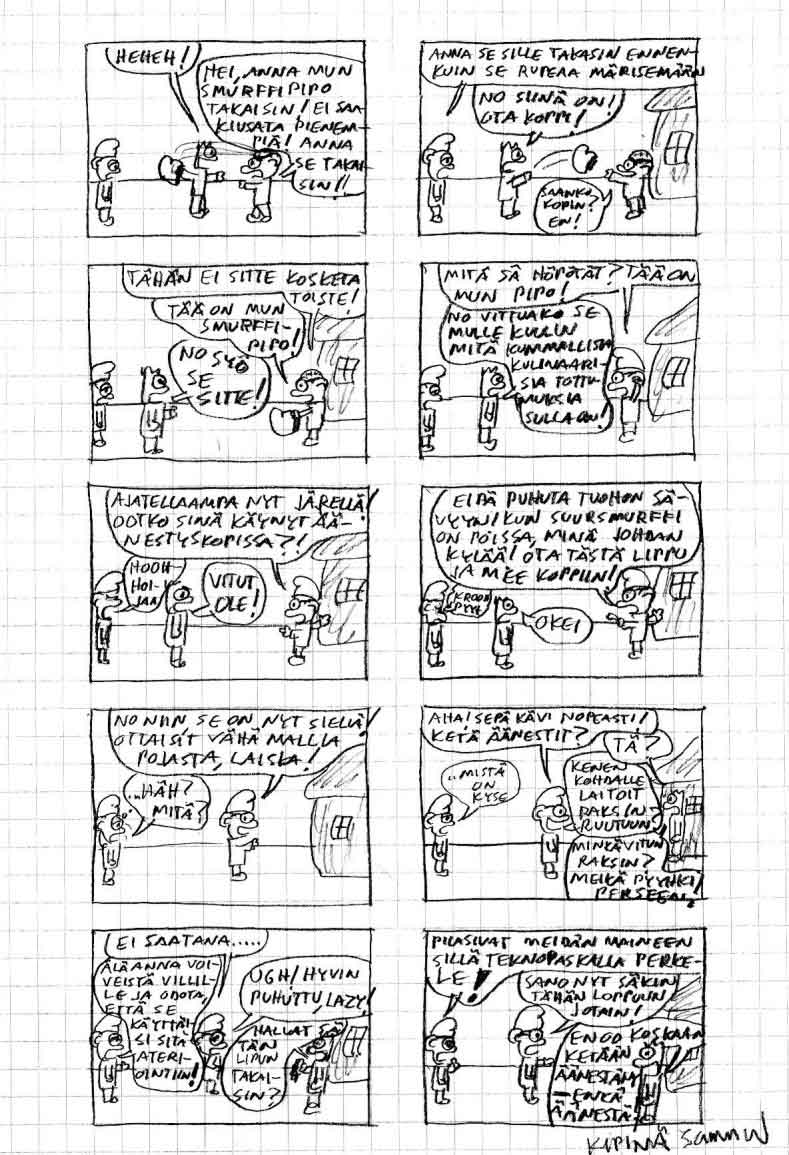 HEHEH!
HEI, ANNA MUN
SMURFFIPIPO
TAKAISIN! EI SAA
KIUSATA PIENEM-
PIÄ! ANNA
SE TAKAI-
SIN!!
ANNA SE SILLE TAKASIN ENNEN-
KUIN SE RUPEAA MÄRISEMÄÄN
NO SIINÄ ON!
OTA KOPPI!
SAANKO
KOPIN?
EN!
TÄHÄN EI SITTE KOSKETA
TOISTE!
TÄÄ ON MUN
SMURFFI-
PIPO!
NO SYÖ
SE
SITTE!
MITÄ SÄ HÖPÖTÄT? TÄÄ ON
MUN PIPO!
NO VITTUAKO SE
MULLE KUULUU
MITÄ KUMMALLISIA
KULINAARI-
SIA TOTTU-
MUKSIA
SULLA ON!
AJATELLAAMPA NYT JÄRELLÄ!
OOTKO SINÄ KÄYNYT ÄÄ-
NESTYSKOPISSA?!
HOOH-
HOI-
JAA
VITUT
OLE!
EIPÄ PUHUTA TUOHON SÄ-
VYYN! KUN SUURSMURFFI
ON POISSA, MINÄ JOHDAN
KYLÄÄ! OTA TÄSTÄ LIPPU
JA MEE KOPPIIN!
KROOH
PYYH
OKEI
NO NIIN SE ON NYT SIELLÄ!
OTTAISIT VÄHÄ MALLIA
POJASTA, LAISKA!
..HÄH?
MITÄ?
AHA! SEPÄ KÄVI NOPEASTI!
KETÄ ÄÄNESTIT?
TÄ?
..MISTÄ
ON
KYSE
KENEN
KOHDALLE
LAITOIT
RAKSIN
RUUTUUN?
MINKÄVITUN
RAKSIN?
MEIKÄ PYYHKI
PERSEEN!
EI SAATANA.....
ÄLÄ ANNA VOI-
VEISTÄ VILLIL-
LE JA ODOTA,
ETTÄ SE
KÄYTTÄI-
SI SITÄ
ATERI-
OINTIIN!
UGH! HYVIN
PUHUTTU, LAZY!
HALUAT SÄ
TÄN
LIPUN
TAKAI-
SIN?
PILASIVAT MEIDÄN MAINEEN
SILLÄ TEKNOPASKALLA PERKE-
LE!
SANO NYT SÄKIN
TÄHÄN LOPPUUN
JOTAIN!
EN OO KOSKAAN
KETÄÄN
ÄÄNESTÄNY
ENKÄ
ÄÄNESTÄ
KIPINÄ